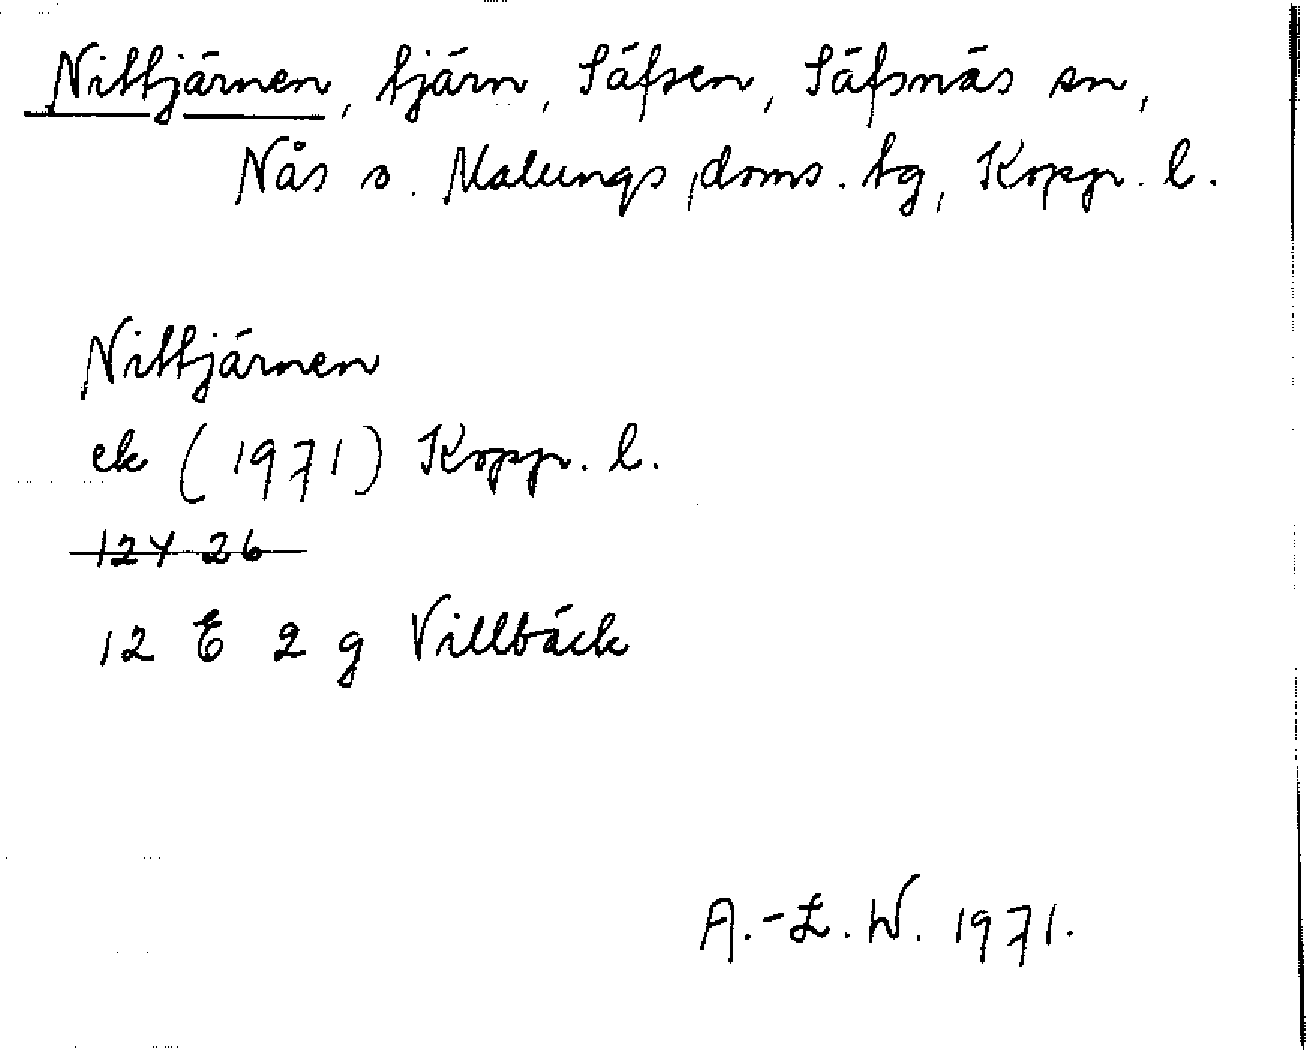 Nittjärnen, tjärn, Säfsen, Säfsnäs sn,
Nås o. Malungs doms. tg, Kopp. l.
Nittjärnen
ek (1971) Kopp. l.
12Y 26
12 E 2 g Villbäck
A.-L. W. 1971.